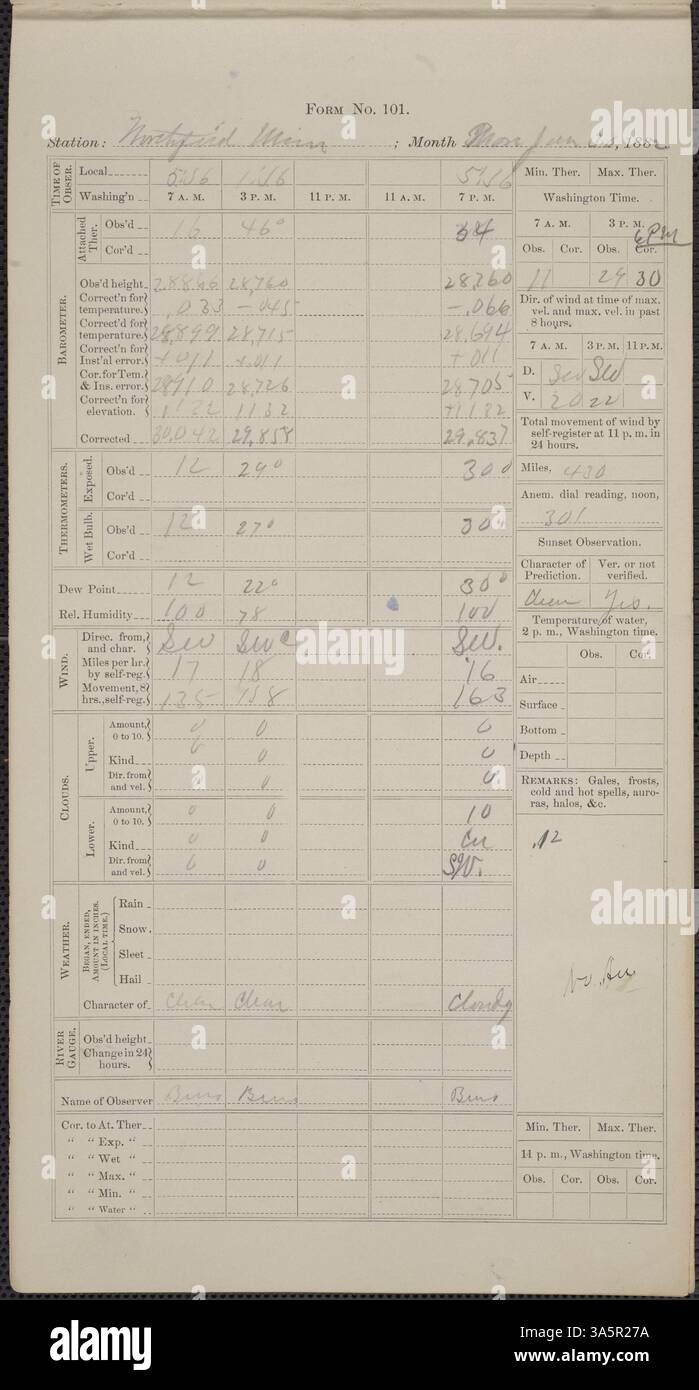 FORM NO. 101.
Station: Northfield Minn ; Month Jan , 188
TIME OF OBSER. Local Washing'n
7 A. M. 3 P. M. 11 P. M. 11 A. M. 7 P. M.
Min. Ther. Max. Ther.
Washington Time.
7 A. M. 3 P. M.
6 PM
Obs. Cor. Obs. Cor.
11 29 30
Attached Ther. Obs'd 16 46° 54
Cor'd
BAROMETER.
Obs'd height 28866 28,760 28,760
Correct'n for temperature. .033 -.045 -.066
Correct'd for temperature. 28899 28,715 28,694
Correct'n for Inst'al error. +011 +.011 +011
Cor. for Tem. & Ins. error. 28910 28,726 28,705
Correct'n for elevation. 1132 1132 +1132
Corrected 30,042 29,858 29,837
Dir. of wind at time of max. vel. and max. vel. in past 8 hours.
7 A. M. 3 P. M. 11 P. M.
D. SW SW
V. 20 22
Total movement of wind by self-register at 11 p. m. in 24 hours.
Miles,
Anem. dial reading, noon,
301
THERMOMETERS.
Exposed. Obs'd 12 29° 30°
Cor'd
Wet Bulb. Obs'd 12 27° 30°
Cor'd
Sunset Observation.
Character of Prediction. Ver. or not verified.
Clear Yes.
Dew Point 12 22° 30°
Rel. Humidity 100 78 100
Temperature of water, 2 p. m., Washington time.
Obs. Cor.
Air
Surface
Bottom
Depth
WIND.
Direc. from, and char. SW SW SW.
Miles per hr. by self-reg. 17 18 16
Movement, 8 hrs., self-reg. 135 158 163
CLOUDS.
Upper.
Amount, 0 to 10. 0 0 0
Kind 0 0 0
Dir. from and vel. 0 0 0
Lower.
Amount, 0 to 10. 0 0 10
Kind 0 0 Cu
Dir. from and vel. 0 0 SW.
REMARKS: Gales, frosts, cold and hot spells, auroras, halos, &c.
.12
WEATHER.
BEGAN, ENDED, AMOUNT IN INCHES. (LOCAL TIME.)
Rain
Snow
Sleet
Hail
Character of Clear Clear Cloudy
RIVER GAUGE.
Obs'd height
Change in 24 hours.
Name of Observer
Cor. to At. Ther.
" " Exp. "
" " Wet "
" " Max. "
" " Min. "
" " Water "
Min. Ther. Max. Ther.
11 p. m., Washington time.
Obs. Cor. Obs. Cor.
alamy
Image ID: 3A5R27A
www.alamy.com